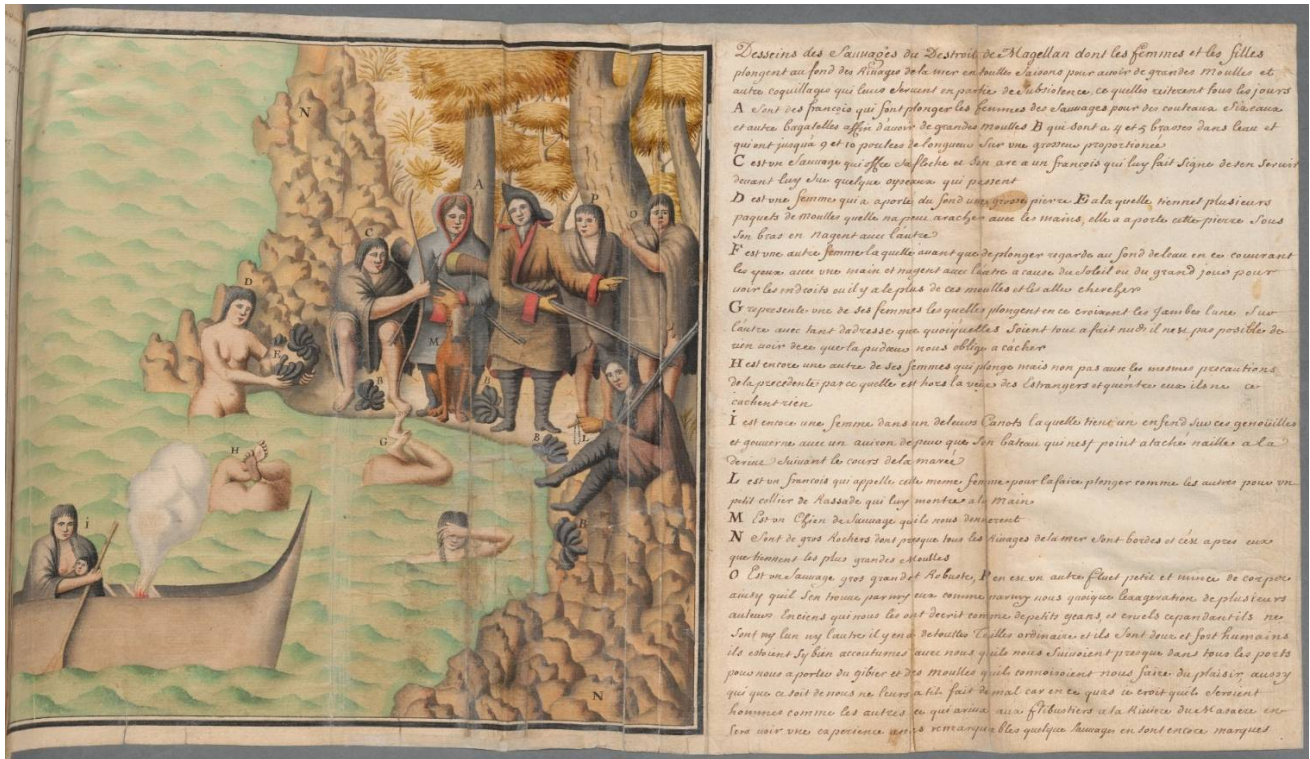 Desseins des Sauvages du Destroit de Magellan dont les femmes et les filles
plongent au fond des Rivages de la mer en touttes saisons pour avoir de grandes moulles et
autre coquillages qui leurs servent en partie de subsistence, ce quelles reiterent tous les jours
A sont des françois qui font plonger les femmes des Sauvages pour des couteaux Sizeaux
et autre bagatelles affin d'avoir de grandes moulles B qui sont a 4 et 5 brasses dans leau et
qui ont jusqu'a 9 et 10 poulces de longueur sur une grosseur proportionée
C est un Sauvage qui offre sa fleche et son arc a un françois qui luy fait signe de sen servir
devant luy sur quelque oyseaux qui passent
D est une femme qui a aporté du fond une grosse pierre E a la quelle tiennet plusieurs
paquets de moulles quelle na peu aracher avec les mains, elle a aporté cette pierre sous
son bras en nagent avec l'autre
F est une autre femme la quelle avant que de plonger regarde au fond de leau en ce couvrant
les yeux avec une main et nagent avec lautre a cause du soleil ou du grand jour pour
voir les indroits ou il y a le plus de ces moulles et les aller chercher
G represente une de ses femmes les quelles plongent en ce croisant les jambes lune sur
l'autre avec tant dadresse que quoiquelles soient tout a fait nuds il nest pas posible de
rien voir de ce que la pudeur nous oblige a cacher
H est encore une autre de ses femmes qui plonge mais non pas avec les mesmes precautions
de la precedente par ce quelle est hors la veüe des Estrangers et quentre eux ils ne ce
cachent rien
i est encore une femme dans un de leurs Canots laquelle tient un enfend sur ces genoüilles
et gouverne avec un aviron de peur que son bateau qui nest point ataché naille a la
derive suivant le cours de la marée
L est un françois qui appelle cette meme femme pour la faire plonger comme les autres pour un
petit collier de Rassade qui luy montre a la main
M Est un Chien de Sauvage quils nous donnerent
N sont de gros Rochers dont presque tous les Rivages de la mer sont bordes et cest apres eux
que tiennent les plus grandes moulles
O Est un Sauvage gros grand et Robuste, P en est un autre fluet petit et mince de corps
ainsy quil sen trouve parmy eux comme parmy nous quoique lexageration de plusieurs
auteurs Enciens qui nous les ont decrit comme de petits geans, et cruels cependant ils ne
sont ny lun ny lautre il y en a de touttes Tailles ordinaire et ils sont doux et fort humains
ils estoient sy bien accoutumes avec nous quils nous suivoient presque dans tous les ports
pour nous aporter du gibier et des moulles quils connoissoient nous faire du plaisir, aussy
qui que ce soit de nous ne leurs a til fait de mal car en ce quas ie croit quils seroient
hommes comme les autres ce qui ariva aux flibustiers a la Riviere du Masacre en
fera voir une experience remarquables quelque Sauvages en sont encore marqués
N
A
P
O
C
D
E
M
B
B
H
G
B
L
i
B
N